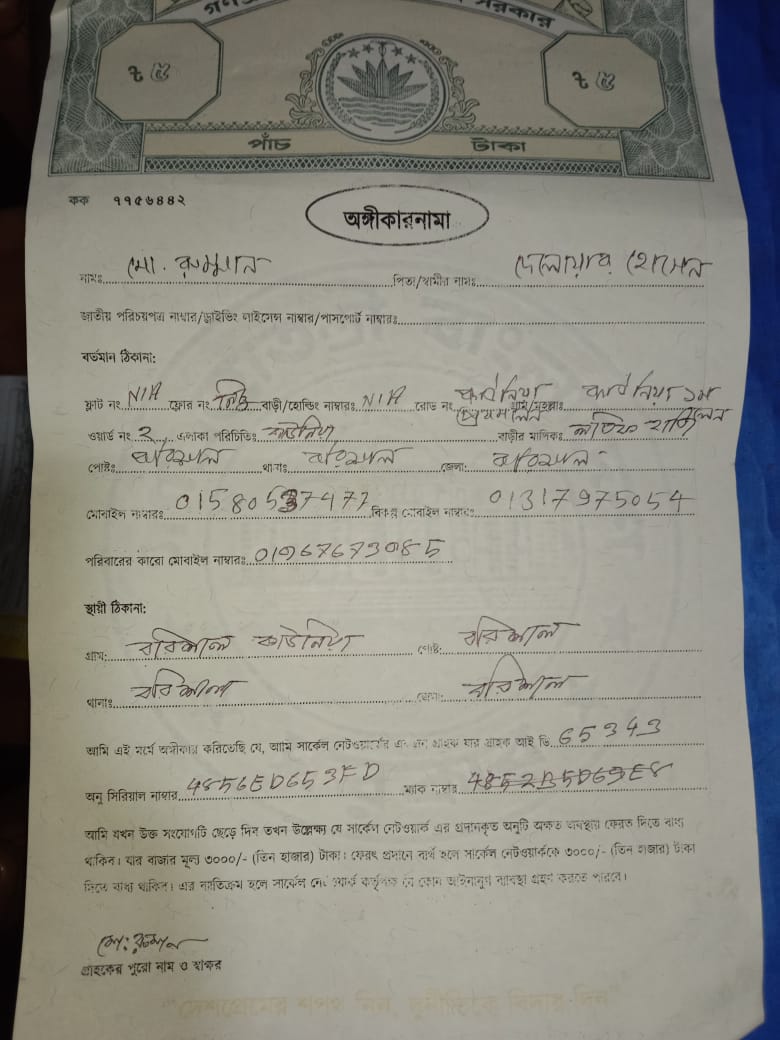 সরকার
৳ ৫ ৳ ৫
পাঁচ টাকা
কক ৭৭৫৬৪৪২
অঙ্গীকারনামা
নামঃ মো. রুম্মান পিতা/স্বামীর নামঃ দেলোয়ার হোসেন
জাতীয় পরিচয়পত্র নাম্বার/ড্রাইভিং লাইসেন্স নাম্বার/পাসপোর্ট নাম্বারঃ
বর্তমান ঠিকানা:
ফ্লাট নং N/A ফ্লোর নং নিচ বাড়ী/হোল্ডিং নাম্বারঃ N/A রোড নং কাউনিয়া প্রথম লেন কাউনিয়া ১ম লেন
ওয়ার্ড নং 2 এলাকা পরিচিতিঃ কাউনিয়া বাড়ীর মালিকঃ
পোষ্টঃ বরিশাল থানাঃ বরিশাল জেলা: বরিশাল
মোবাইল নাম্বারঃ 01580537477 বিকল্প মোবাইল নাম্বারঃ 01317975054
পরিবারের কারো মোবাইল নাম্বারঃ 01967673085
স্থায়ী ঠিকানা:
গ্রাম: বরিশাল কাউনিয়া পোষ্ট: বরিশাল
থানাঃ বরিশাল জেলা: বরিশাল
আমি এই মর্মে অঙ্গীকার করিতেছি যে, আমি সার্কেল নেটওয়ার্কের একজন গ্রাহক যার গ্রাহক আই ডি 65343
অনু সিরিয়াল নাম্বার 4856ED653FD ম্যাক নাম্বার 4852B5D69E8
আমি যখন উক্ত সংযোগটি ছেড়ে দিব তখন উল্লেক্ষ্য যে সার্কেল নেটওয়ার্ক এর প্রদানকৃত অনুটি অক্ষত অবস্থায় ফেরত দিতে বাধ্য
থাকিব। যার বাজার মূল্য ৩০০০/- (তিন হাজার) টাকা। ফেরৎ প্রদানে ব্যর্থ হলে সার্কেল নেটওয়ার্ককে ৩০০০/- (তিন হাজার) টাকা
দিতে বাধ্য থাকিব। এর ব্যতিক্রম হলে সার্কেল নেটওয়ার্ক কর্তৃপক্ষ যে কোন আইনানুগ ব্যবস্থা গ্রহণ করতে পারবে।
মো: রুম্মান
গ্রাহকের পুরো নাম ও স্বাক্ষর
"দেশপ্রেমের শপথ নিন, দুর্নীতিকে বিদায় দিন"